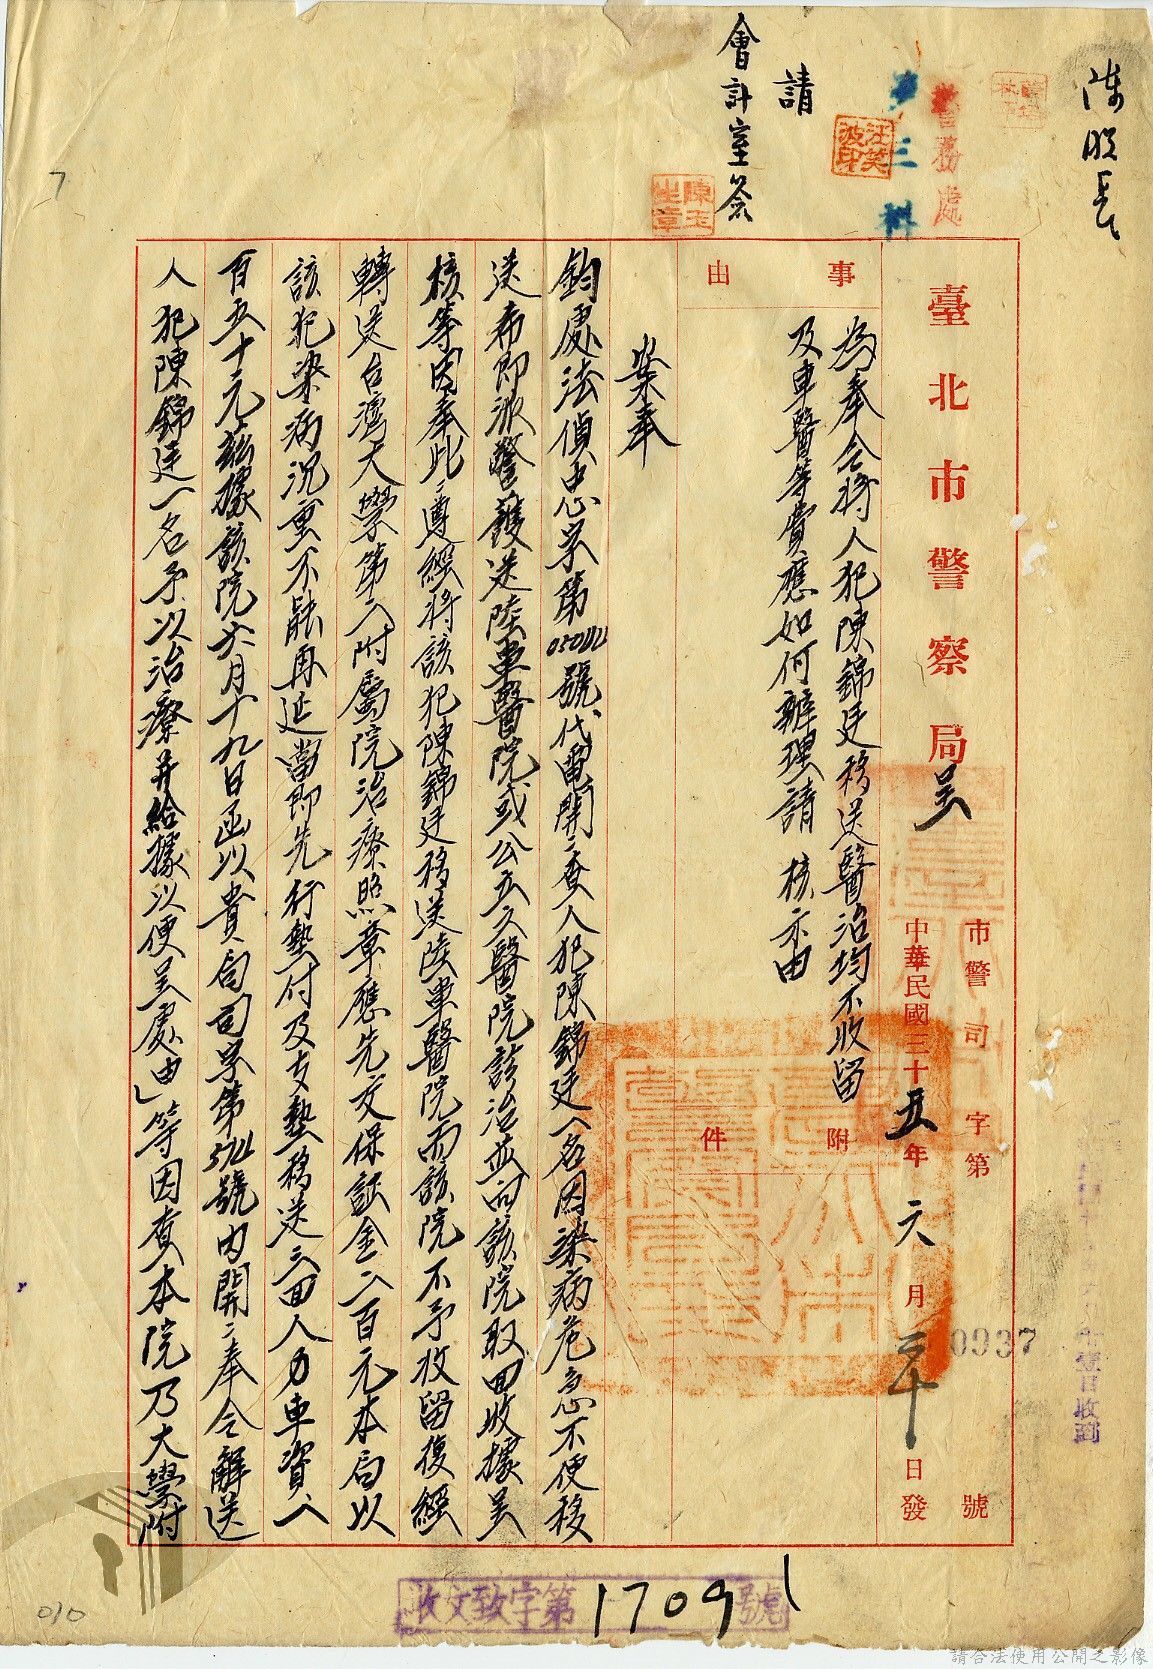 請
會計室簽
警務處
第三科
汪笑波印
陳玉生章
臺北市警察局呈
市警司字第 號
中華民國三十五年六月二十日發
0937
事由
為奉令將人犯陳錦廷移送醫治均不收留
及車醫等費應如何辦理請 核示由
附件
案奉
鈞處法偵忠字第 號代電開：查人犯陳錦廷一名因染病危急不便移
送希即派警護送陸軍醫院或公立之醫院診治並向該院取回收據呈
核等因奉此：遵經將該犯陳錦廷移送陸軍醫院而該院不予收留復經
轉送台灣大學第二附屬院治療照章應先交保証金二百元本局以
該犯染病沉重不能再延當即先行墊付及支墊移送之回人力車資一
百五十元茲據該院六月十九日函以貴局司字第 號內開：奉令解送
人犯陳錦廷一名予以治療并給據以便呈處由」等因查本院乃大學附
收文致字第17091號
7
010
請合法使用公開之影像